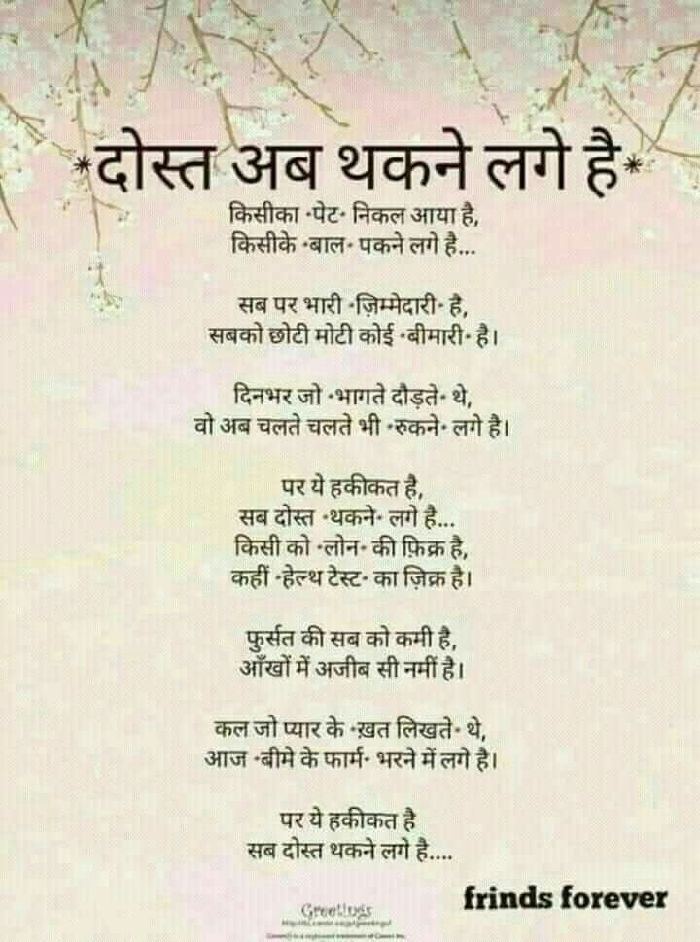 *दोस्त अब थकने लगे है*
किसीका *पेट* निकल आया है,
किसीके *बाल* पकने लगे है...
सब पर भारी *ज़िम्मेदारी* है,
सबको छोटी मोटी कोई *बीमारी* है।
दिनभर जो *भागते दौड़ते* थे,
वो अब चलते चलते भी *रुकने* लगे है।
पर ये हकीकत है,
सब दोस्त *थकने* लगे है...
किसी को *लोन* की फ़िक्र है,
कहीं *हेल्थ टेस्ट* का ज़िक्र है।
फुर्सत की सब को कमी है,
आँखों में अजीब सी नमीं है।
कल जो प्यार के *ख़त लिखते* थे,
आज *बीमे के फार्म* भरने में लगे है।
पर ये हकीकत है
सब दोस्त थकने लगे है....
frinds forever
Greetings